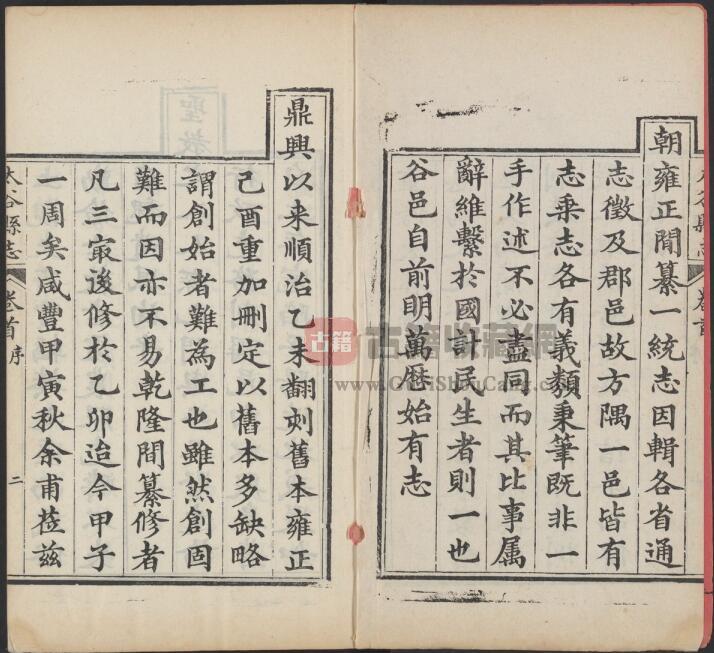 朝雍正間纂一統志因輯各省通
志徵及郡邑故方隅一邑皆有
志乘志各有義類秉筆既非一
手作述不必盡同而其比事属
辭維繫於國計民生者則一也
谷邑自前明萬曆始有志
鼎興以来順治乙未翻刻舊本雍正
己酉重加刪定以舊本多缺略
謂創始者難為工也雖然創固
難而因亦不易乾隆間纂修者
凡三㝡後修於乙卯迨今甲子
一周矣咸豐甲寅秋余甫莅兹
太谷縣志 卷首 序 二
古籍
古籍收藏網
www.GuJiShuCang.com